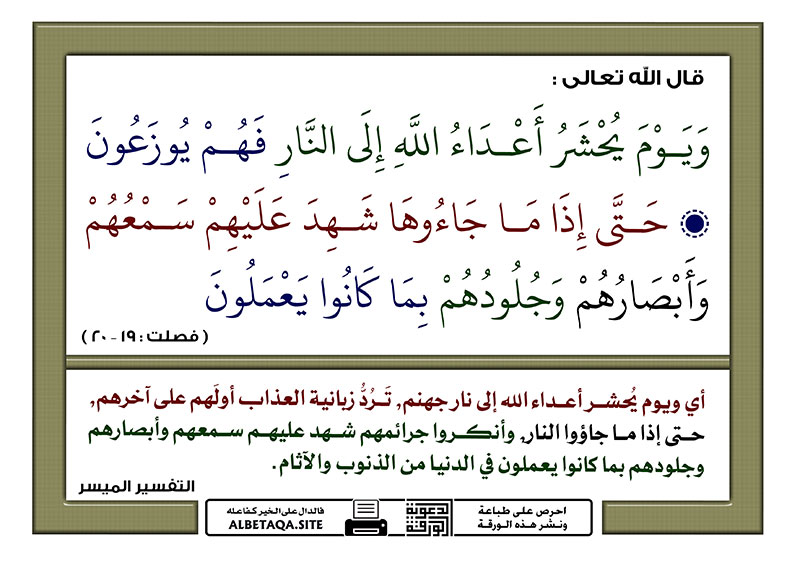 قال الله تعالى :
وَيَـوْمَ يُحْشَرُ أَعْـدَاءُ اللَّهِ إِلَى النَّـارِ فَـهُـمْ يُوزَعُونَ
حَـتَّى إِذَا مَـا جَاءُوهَا شَـهِدَ عَلَيْهِمْ سَـمْعُهُمْ
وَأَبْصَارُهُمْ وَجُلُودُهُمْ بِمَا كَانُوا يَعْمَلُونَ
( فصلت : ١٩ - ٢٠ )
أي ويوم يُحشـر أعـداء الله إلى نار جهنم, تَـرُدُّ زبانية العذاب أولَهم على آخرهم,
حـتى إذا مـا جاؤوا النار, وأنكـروا جرائمهم شـهد عليهـم سـمعهم وأبصارهم
وجلودهم بما كانوا يعملون في الدنيا من الذنوب والآثام.
التفسير الميسر
فالدال على الخير كفاعله
ALBETAQA.SITE
الدعوية
الورقة
احرص على طباعة
ونشر هذه الورقة